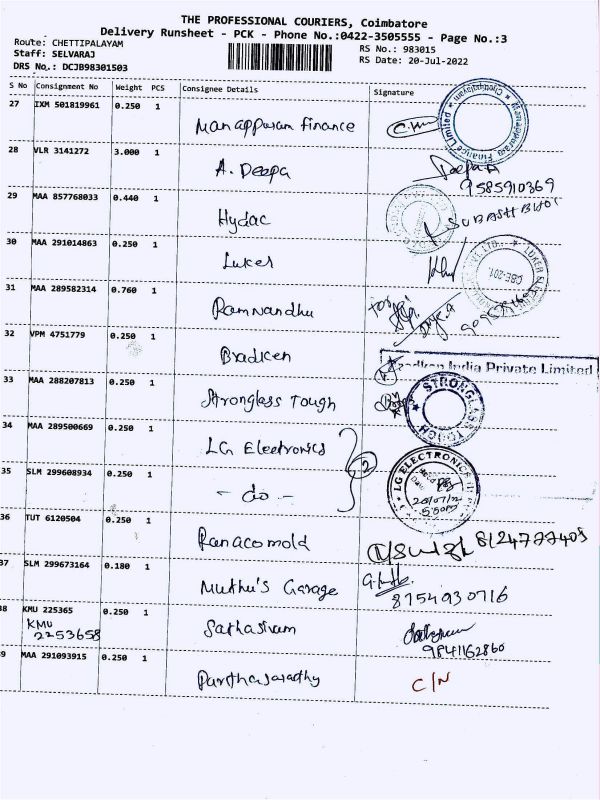 THE PROFESSIONAL COURIERS, Coimbatore
Delivery Runsheet - PCK - Phone No.:0422-3505555 - Page No.:3
Route: CHETTIPALAYAM
Staff: SELVARAJ
DRS No.: DCJB98301503
RS No.: 983015
RS Date: 20-Jul-2022
S No Consignment No Weight PCS Consignee Details Signature
27 IXM 501819961 0.250 1 Manappuram finance
Manappuram Finance Limited
28 VLR 3141272 3.000 1 A. Deepa Deepa A
9585910369
29 MAA 857768033 0.440 1 Hydac
30 MAA 291014863 0.250 1 Luker
31 MAA 289582314 0.760 1 Ramnandhu
32 VPM 4751779 0.250 1 Bradken
India Private Limited
33 MAA 288207813 0.250 1 Stronglass Tough
STRONGLASS TOUGH
34 MAA 289500669 0.250 1 LG Electronics
2
LG ELECTRONICS
35 SLM 299608934 0.250 1 - do -
36 TUT 6120504 0.250 1 Panacomold
37 SLM 299673164 0.180 1 Muthu's Garage
8754930716
38 KMU 225365 0.250 1 Sathasivam
KMU
2253658
9841162860
39 MAA 291093915 0.250 1 Parthasarathy C/N